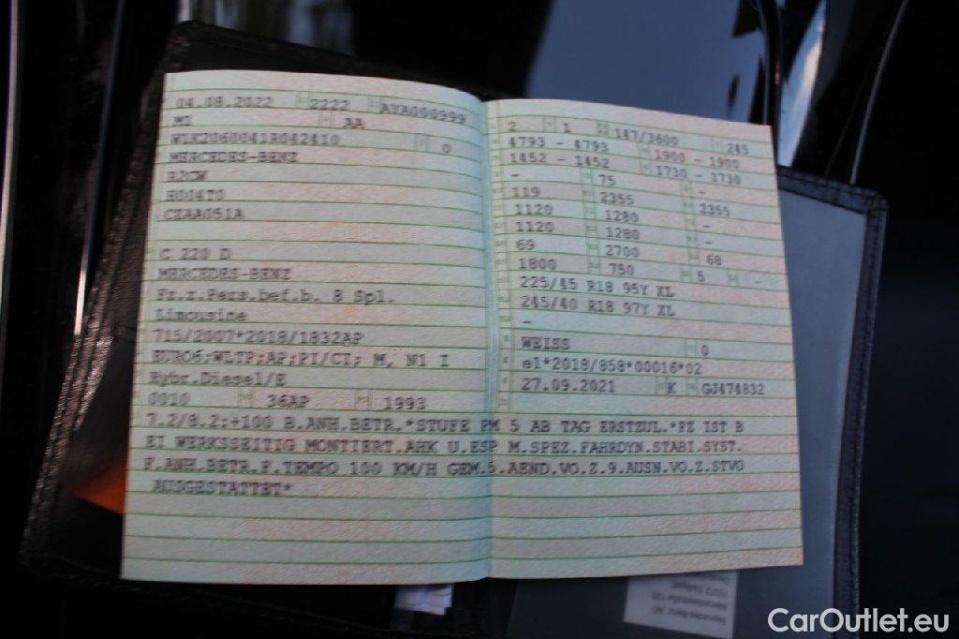 04.08.2022 2222 AYA000999
M1 AA
W1K2060041R042410 0
MERCEDES-BENZ
R2CW
H004T0
CZAA051A
C 220 D
MERCEDES-BENZ
Fz.z.Pers.bef.b. 8 Spl.
Limousine
715/2007*2018/1832AP
EURO6;WLTP;AP;PI/CI; M, N1 I
Hybr.Diesel/E
0010 36AP 1993
2 1 147/3600 245
4793 - 4793 1900 - 1900
1452 - 1452 1730 - 1730
- 75 -
119 2355 2355
1120 1280 -
1120 1280 -
69 2700 68
1800 750 5 -
225/45 R18 95Y XL
245/40 R18 97Y XL
-
WEISS 0
e1*2018/858*00016*02
27.09.2021 K GJ474832
7.2/8.2:+100 B.ANH.BETR.*STUFE PM 5 AB TAG ERSTZUL.*FZ IST B
EI WERKSSEITIG MONTIERT.AHK U.ESP M.SPEZ.FAHRDYN.STABI.SYST.
F.ANH.BETR.F.TEMPO 100 KM/H GEM.5.AEND.VO.Z.9.AUSN.VO.Z.STVO
AUSGESTATTET*
CarOutlet.eu